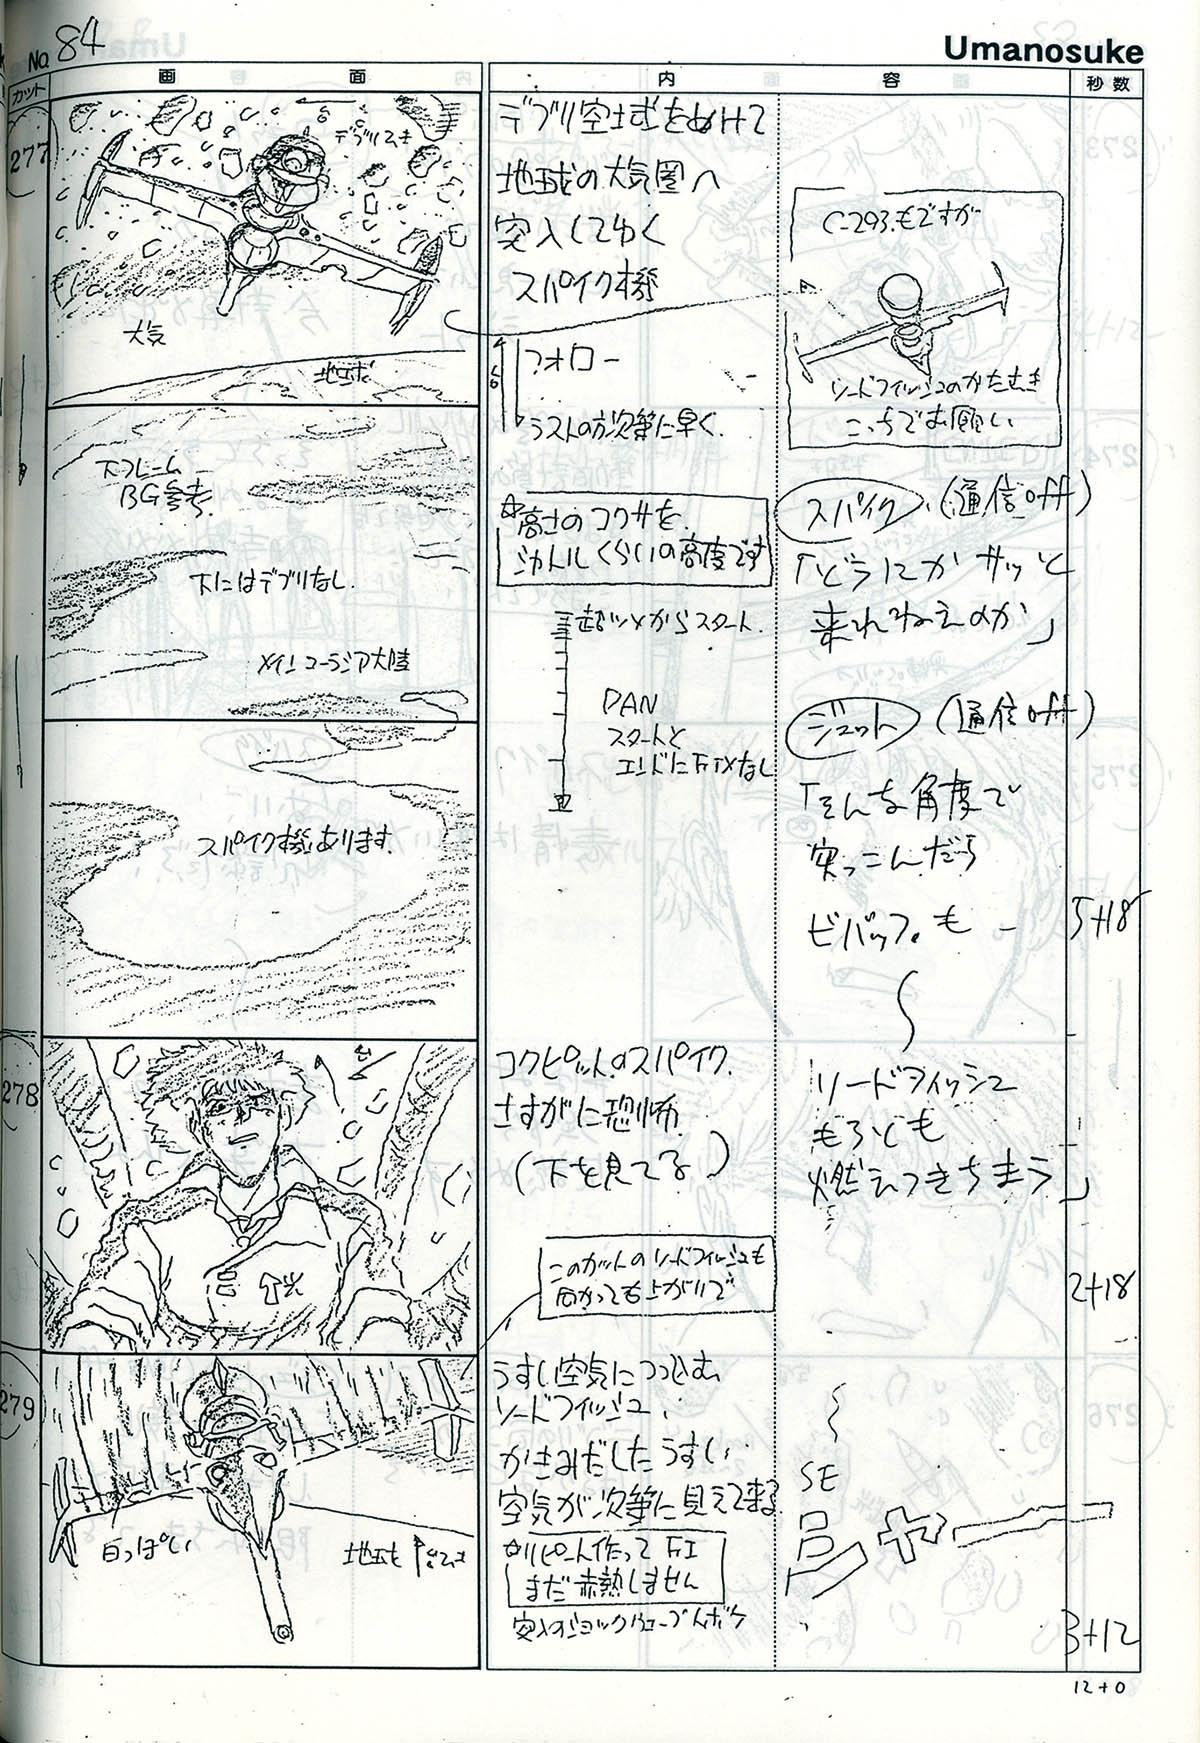 No. 84
Umanosuke
カット
画 面
内 容
秒数
277
デブリ引き
大気
地球
デブリ空域をぬけて
地球の大気圏へ
突入してゆく
スパイク機
フォロー
ラストの方次第に早く
C-293.もですが
ソードフィッシュのかたむき
こっちでお願い
下フレーム
BG参考
下にはデブリなし.
メイン ユーラジア大陸
高さのコワサを
カンドルくらいの高度です
超ツメからスタート.
PAN
スタートと
エンドにFIXなし
スパイク機あります.
スパイク (通信off)
「どうにかサッと
来れねえのか」
ジェット (通信off)
「そんな角度で
突っこんだら
ビバップも ー
ソードフィッシュ
もろとも
燃えつきちまう」
5+18
278
コクピットのスパイク.
さすがに恐怖.
(下を見てる)
2+18
このカットのソードフィッシュも
向かって右上がりで
279
白っぽい
地球
うすい空気につっこむ
ソードフィッシュ.
かきみだしたうすい
空気が次第に見えて来る.
リピート作って FI
まだ赤熱しません
突入のショックウェーブ
SE
ゴヤー
3+12
12+0